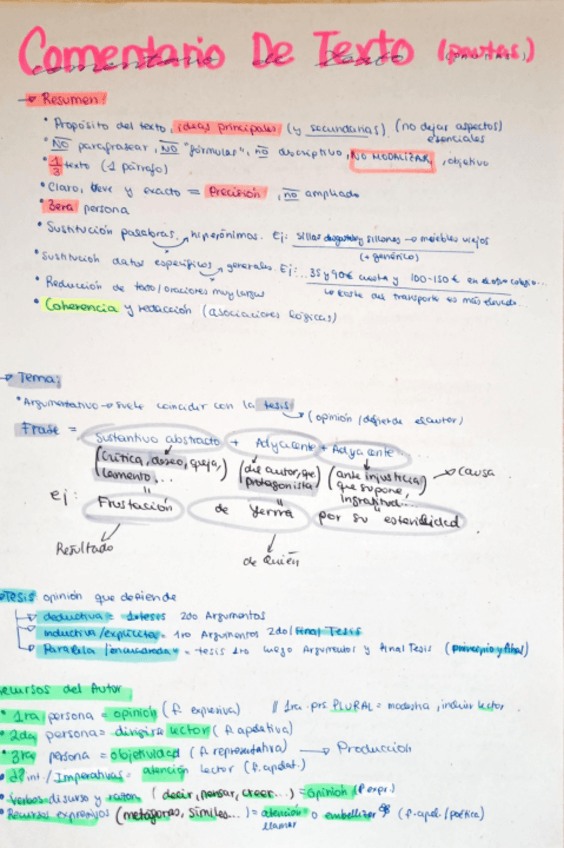 Comentario De Texto (pautas)
→ Resumen:
• Propósito del texto, ideas principales (y secundarias) (no dejar aspectos)
esenciales
• NO parafrasear, NO "fórmulas", no descriptivo, NO MODALIZAR, objetivo
• 1/3 texto (1 párrafo)
• Claro, breve y exacto = Precisión, no ampliado
• 3era persona
• Sustitución palabras → hiperónimos. Ej: sillas y sillones → muebles viejos
(+ genérico)
• Sustitución datos específicos → generales. Ej: ... 35 y 90€ cuesta y 100-150€ en el otro colegio...
Lo coste del transporte es más elevado...
• Reducción de todo/oraciones muy largas
• Coherencia y redacción (asociaciones lógicas)
→ Tema:
• Argumentativo → suele coincidir con la tesis
→ (opinión/defiende el autor)
Frase = Sustantivo abstracto + Adyacente + Adyacente
(crítica, deseo, queja, lamento, ...) (del autor, que protagonista) (ante injusticia que supone, ingratitud...) → causa
ej: Frustación de Yerma por su esterilidad
Resultado de quién
Tesis opinión que defiende
→ deductiva = 1o tesis 2do Argumentos
→ inductiva/explicita = 1ro Argumentos 2do/final Tesis
→ Paralela/encuadrada = tesis 1ro luego Argumentos y final Tesis (principio y final)
ecursos del Autor
• 1ra persona = opinión (f. expresiva) // 1ra prs PLURAL = modestia, incluir lector
• 2da persona = dirigirse lector (f. apelativa)
• 3ra persona = objetividad (f. representativa) → Producción
• int/Imperativas = atención lector (f. apelat.)
• Verbos discurso y razón (decir, pensar, creer...) = opinión (f. expr.)
• Recursos expresivos (metáforas, símiles...) = atención o embellizer (f. apel./poética)
llamar